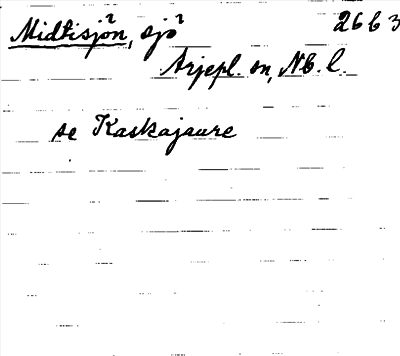 Midtisjön, sjö 2663
Arjepl. sn, Nb. l.
se Kaskajaure